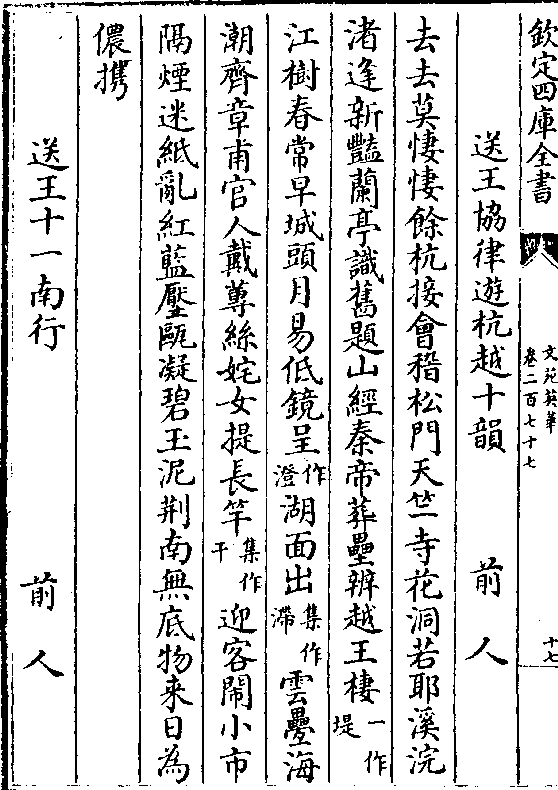 欽定四庫全書
文苑英華
卷二百七十七
十七
送王協律遊杭越十韻 前人
去去莫悽悽餘杭接會稽松門天竺寺花洞若耶溪浣
渚逢新豔蘭亭識舊題山經秦帝葬壘辨越王棲一作堤
江樹春常早城頭月易低鏡呈作澄湖面出集作滯雲疊海
潮齊章甫官人戴蓴絲姹女提長竿集作干迎客鬧小市
隔煙迷紙亂紅藍壓甌凝碧玉泥荆南無底物来日為
儂擕
送王十一南行 前人